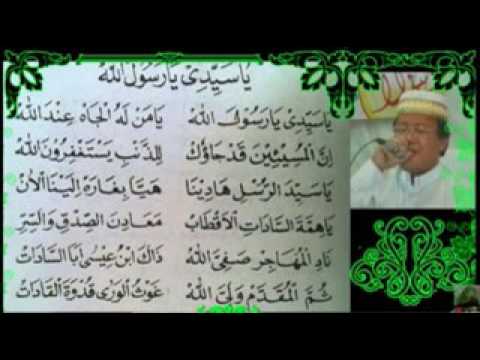 يَاسَيِّدِىْ يَارَسُوْلَ اللهْ
يَاسَيِّدِىْ يَارَسُوْلَ اللهْ يَامَنْ لَهُ الْجَاهْ عِنْدَ اللهْ
اِنَّ الْمُسِيْئِيْنَ قَدْ جَاؤُكْ لِلذَّنْبِ يَسْتَغْفِرُوْنَ اللهْ
يَاسَيِّدَ الرُّسْلِ هَادِيْنَا هَيَّا بِغَارَهْ اِلَيْنَا الْاٰنْ
يَاهِمَّةَ السَّادَاتِ الْاَقْطَابْ مَعَادِنَ الصِّدْقِ وَالسِّرِّ
نَادِ الْمُهَاجِرْ صَفِيَّ اللهْ ذَاكَ ابْنُ عِيْسٰى اَبَا السَّادَاتْ
ثُمَّ الْمُقَدَّمْ وَلِيَّ اللهْ غَوْثَ الْوَرٰى قُدْوَةَ الْقَادَاتْ